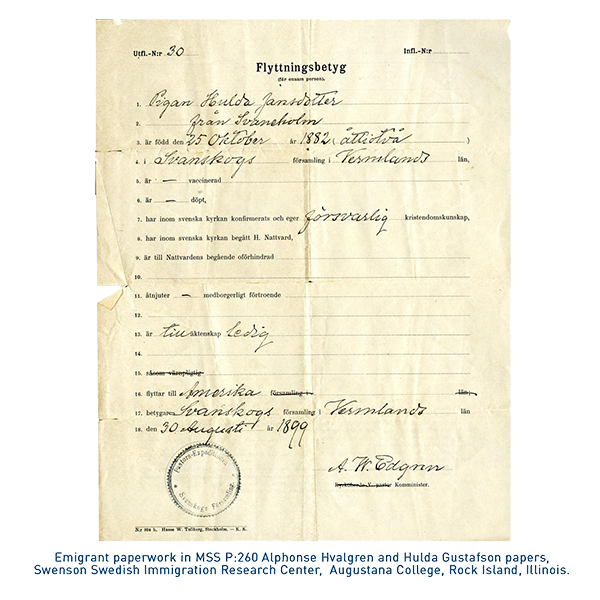 Utfl.-N:r 30 Infl.-N:r
Flyttningsbetyg
(för ensam person).
1. Pigan Hulda Jansdotter
2. från Svaneholm
3. är född den 25 Oktober år 1882 (åttiotvå)
4. i Svanskogs församling i Vermlands län,
5. är — vaccinerad
6. är — döpt,
7. har inom svenska kyrkan konfirmerats och eger försvarlig kristendomskunskap,
8. har inom svenska kyrkan begått H. Nattvard,
9. är till Nattvardens begående oförhindrad
10.
11. åtnjuter — medborgerligt förtroende
12.
13. är till äktenskap ledig
14.
15. såsom värnpligtig
16. flyttar till Amerika församling i län;
17. betygar Svanskogs församling i Vermlands län
18. den 30 Augusti år 1899
A. W. Edgren
Kyrkoherde V. pastor Komminister.
Pastors-Expeditionen
Svanskogs Församling
N:r 804 b. Hasse W. Tullberg, Stockholm. — K. K.
Emigrant paperwork in MSS P:260 Alphonse Hvalgren and Hulda Gustafson papers,
Swenson Swedish Immigration Research Center, Augustana College, Rock Island, Illinois.